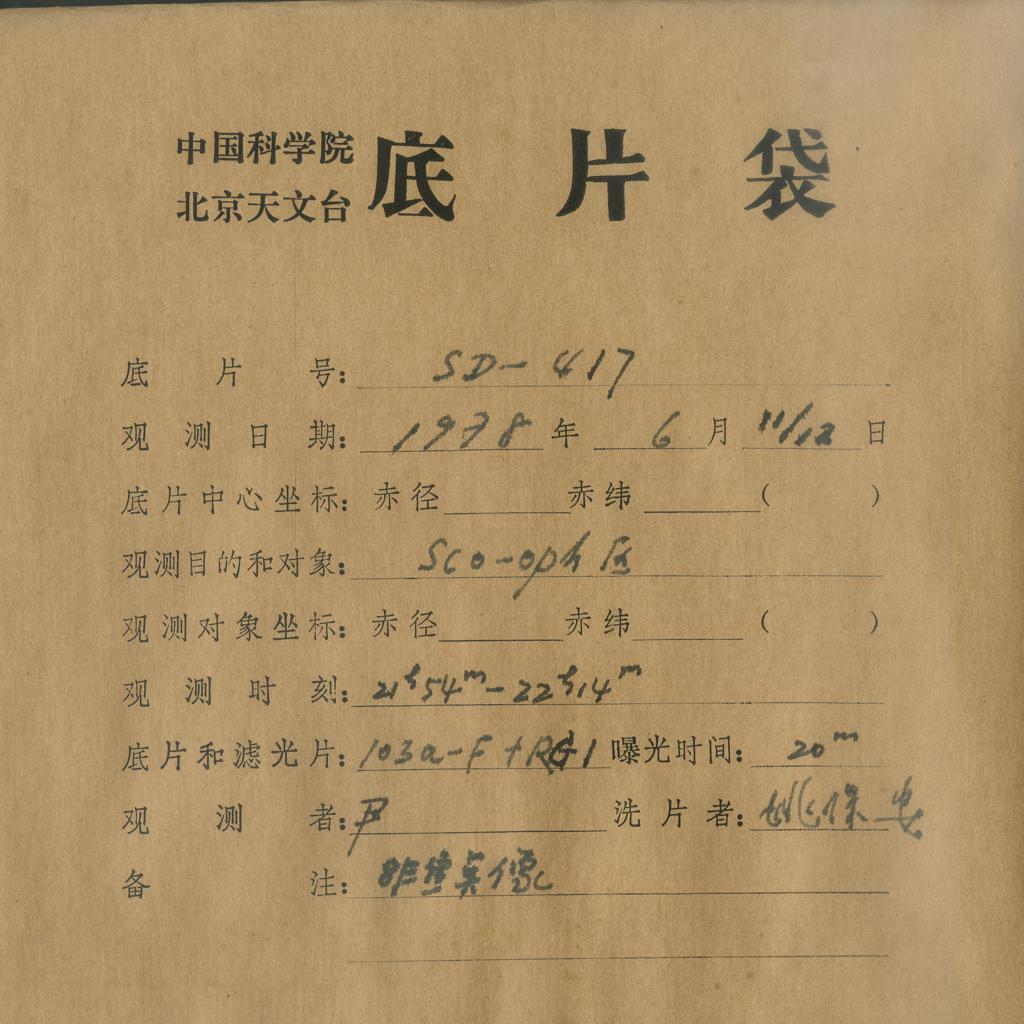 中国科学院
北京天文台
底片袋
底片号: SD-417
观测日期: 1978年 6月 11/12日
底片中心坐标: 赤径 赤纬 ( )
观测目的和对象: Sco-oph 区
观测对象坐标: 赤径 赤纬 ( )
观测时刻: 21h54m-22h14m
底片和滤光片: 103a-F+RG1 曝光时间: 20m
观测者: 洗片者: 姚保安
备注: